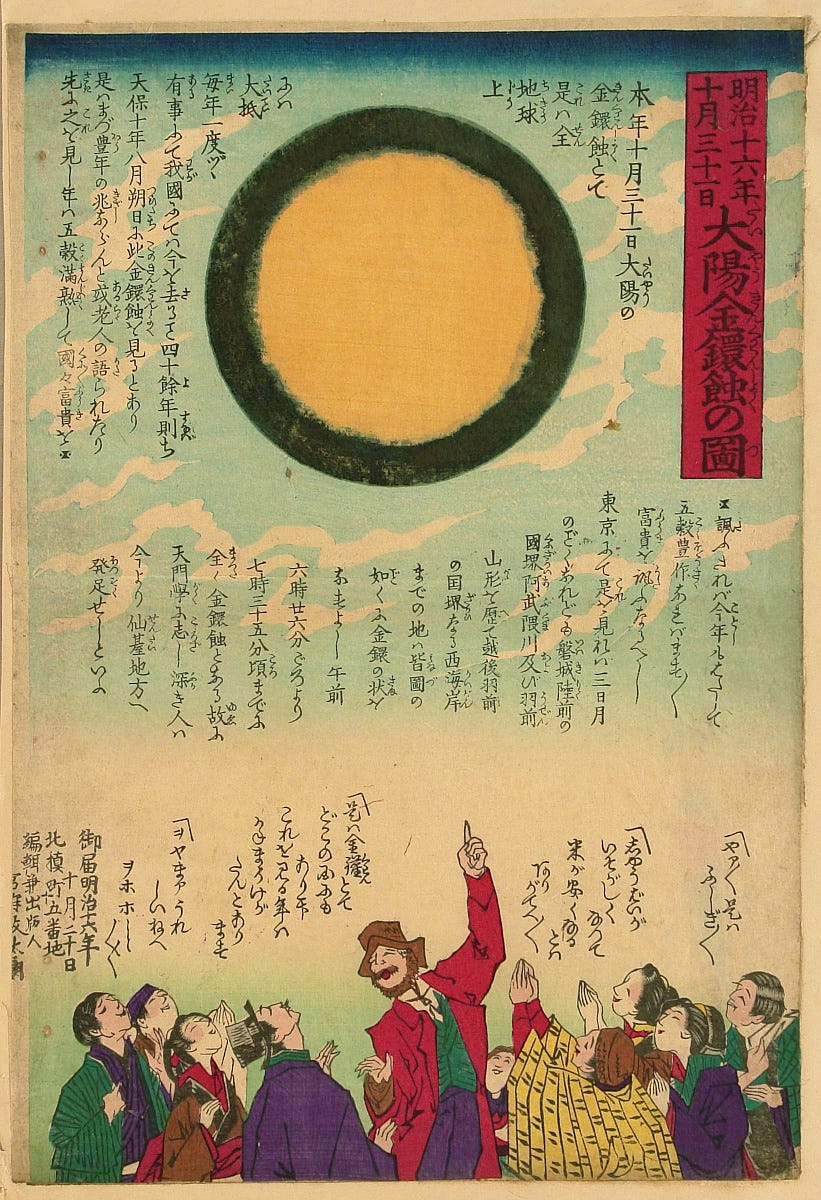 明治十六年
十月三十一日
大陽金鐶蝕の圖
本年十月三十一日大陽の
金鐶蝕とて
是ハ全
地球
上
にハ
大抵
毎年一度ヅヽ
有事にて我國にてハ今を去る事四十餘年則ち
天保十年八月朔日に此金鐶蝕を見るとあり
是ハまづ豊年の兆ならんと或老人の語られたり
先に之を見し年ハ五穀満熟して國々富貴を
五穀豊作
富貴を祝ふなるべし
東京にて是を見れバ三日月
のごくなれども磐城陸前の
國堺阿武隈川及び羽前
山形を歴て越後羽前
の国堺なる西海岸
までの地ハ皆圖の
如くに金鐶の状を
なすよし午前
六時廿六分ごろより
七時三十五分頃までに
全く金鐶蝕とある故に
天門學に志し深き人ハ
今より仙基地方へ
発足せしといふ
ふしぎ〳〵
いそがしくなつて
米が安くなる
是ハ金鐶とて
どこの国にも
これを見る年ハ
たんとあり
ます
ヲヤまアうれ
しいねへ
ヲホホ
御届明治十六年
十月二十日
北槙町五番地
編輯兼出版人